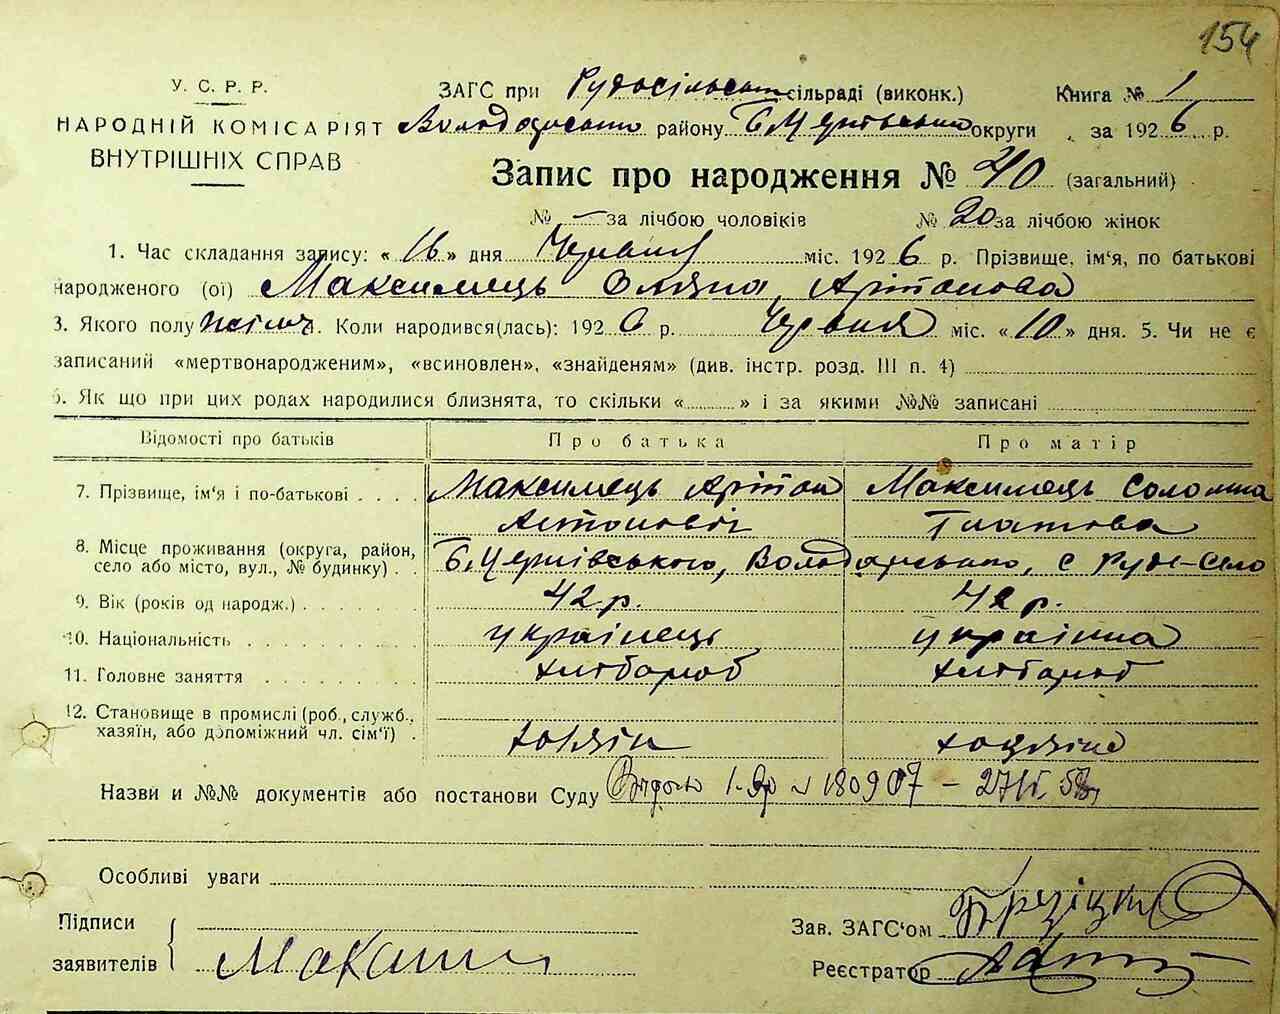 154
У. С. Р. Р. ЗАГС при Рудосільськ сільраді (виконк.) Книга № 1
НАРОДНІЙ КОМІСАРІЯТ Володарського району Б.Церківської округи за 1926 р.
ВНУТРІШНІХ СПРАВ
Запис про народження № 40 (загальний)
№ — за лічбою чоловіків № 20 за лічбою жінок
1. Час складання запису: «16» дня Червня міс. 1926 р. Прізвище, ім'я, по батькові
народженого (ої) Максимець Оляна Артонова
3. Якого полу жіноч. 4. Коли народився(лась): 1926 р. Червня міс. «10» дня. 5. Чи не є
записаний «мертвонародженим», «всиновлен», «знайденям» (див. інстр. розд. III п. 4)
6. Як що при цих родах народилися близнята, то скільки «......» і за якими №№ записані
Відомості про батьків Про батька Про матір
7. Прізвище, ім'я і по-батькові . . . . Максимець Артон Максимець Соломія
Антонович Гнатова
8. Місце проживання (округа, район, село або місто, вул., № будинку) . . Б.Церківського, Володарського, с Руде-Село
9. Вік (років од народж.) . . . . . . 42 р. 42 р.
10. Національність . . . . . . . . українець українка
11. Головне заняття . . . . . . . хлібороб хлібороб
12. Становище в промислі (роб., служб.,
хазяїн, або допоміжний чл. сім'ї) . хазяїн хазяїна
Назви и №№ документів або постанови Суду 1. № 180907 – 27
Особливі уваги
Підписи
заявителів Максим
Зав. ЗАГС'ом
Реєстратор